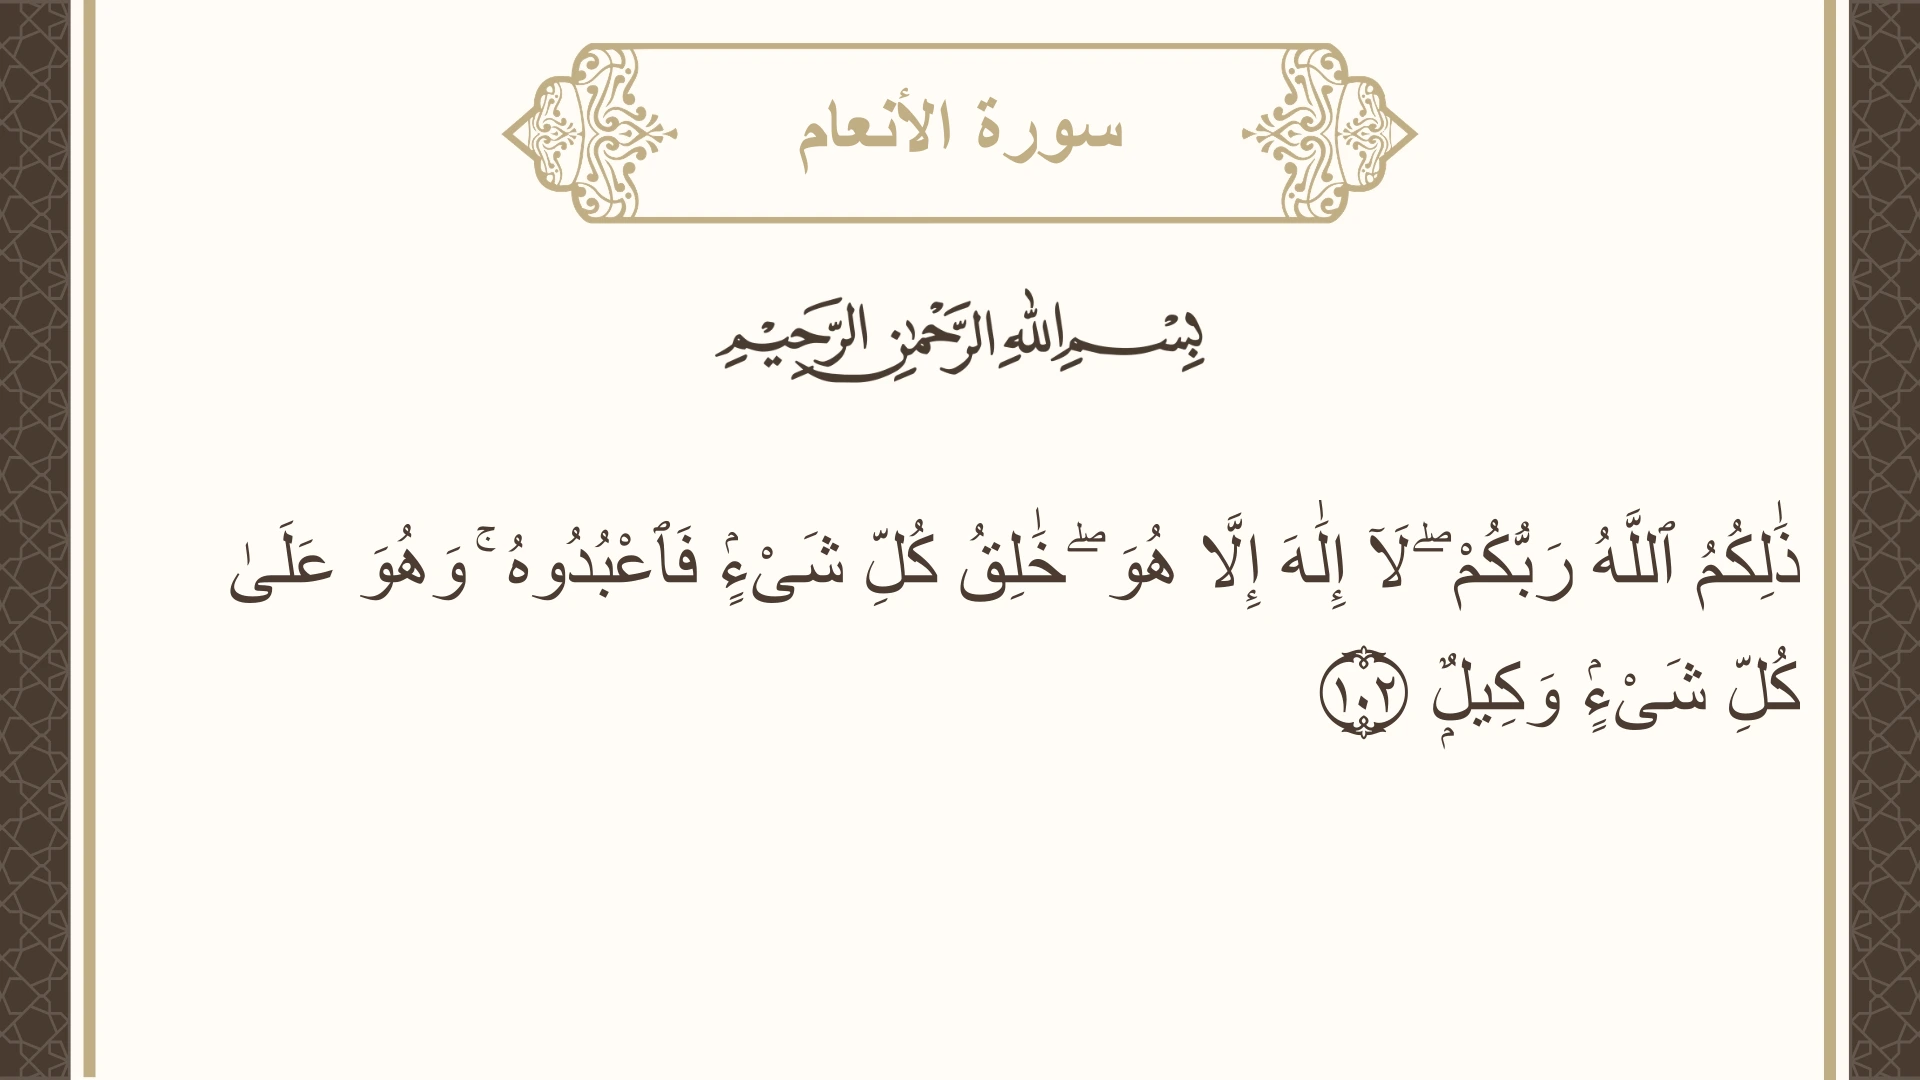 سورة الأنعام
بِسْمِ اللهِ الرَّحْمٰنِ الرَّحِيْمِ
ذَٰلِكُمُ ٱللَّهُ رَبُّكُمْ ۖ لَآ إِلَٰهَ إِلَّا هُوَ ۖ خَٰلِقُ كُلِّ شَىْءٍۢ فَٱعْبُدُوهُ ۚ وَهُوَ عَلَىٰ
كُلِّ شَىْءٍۢ وَكِيلٌۭ ١٠٢